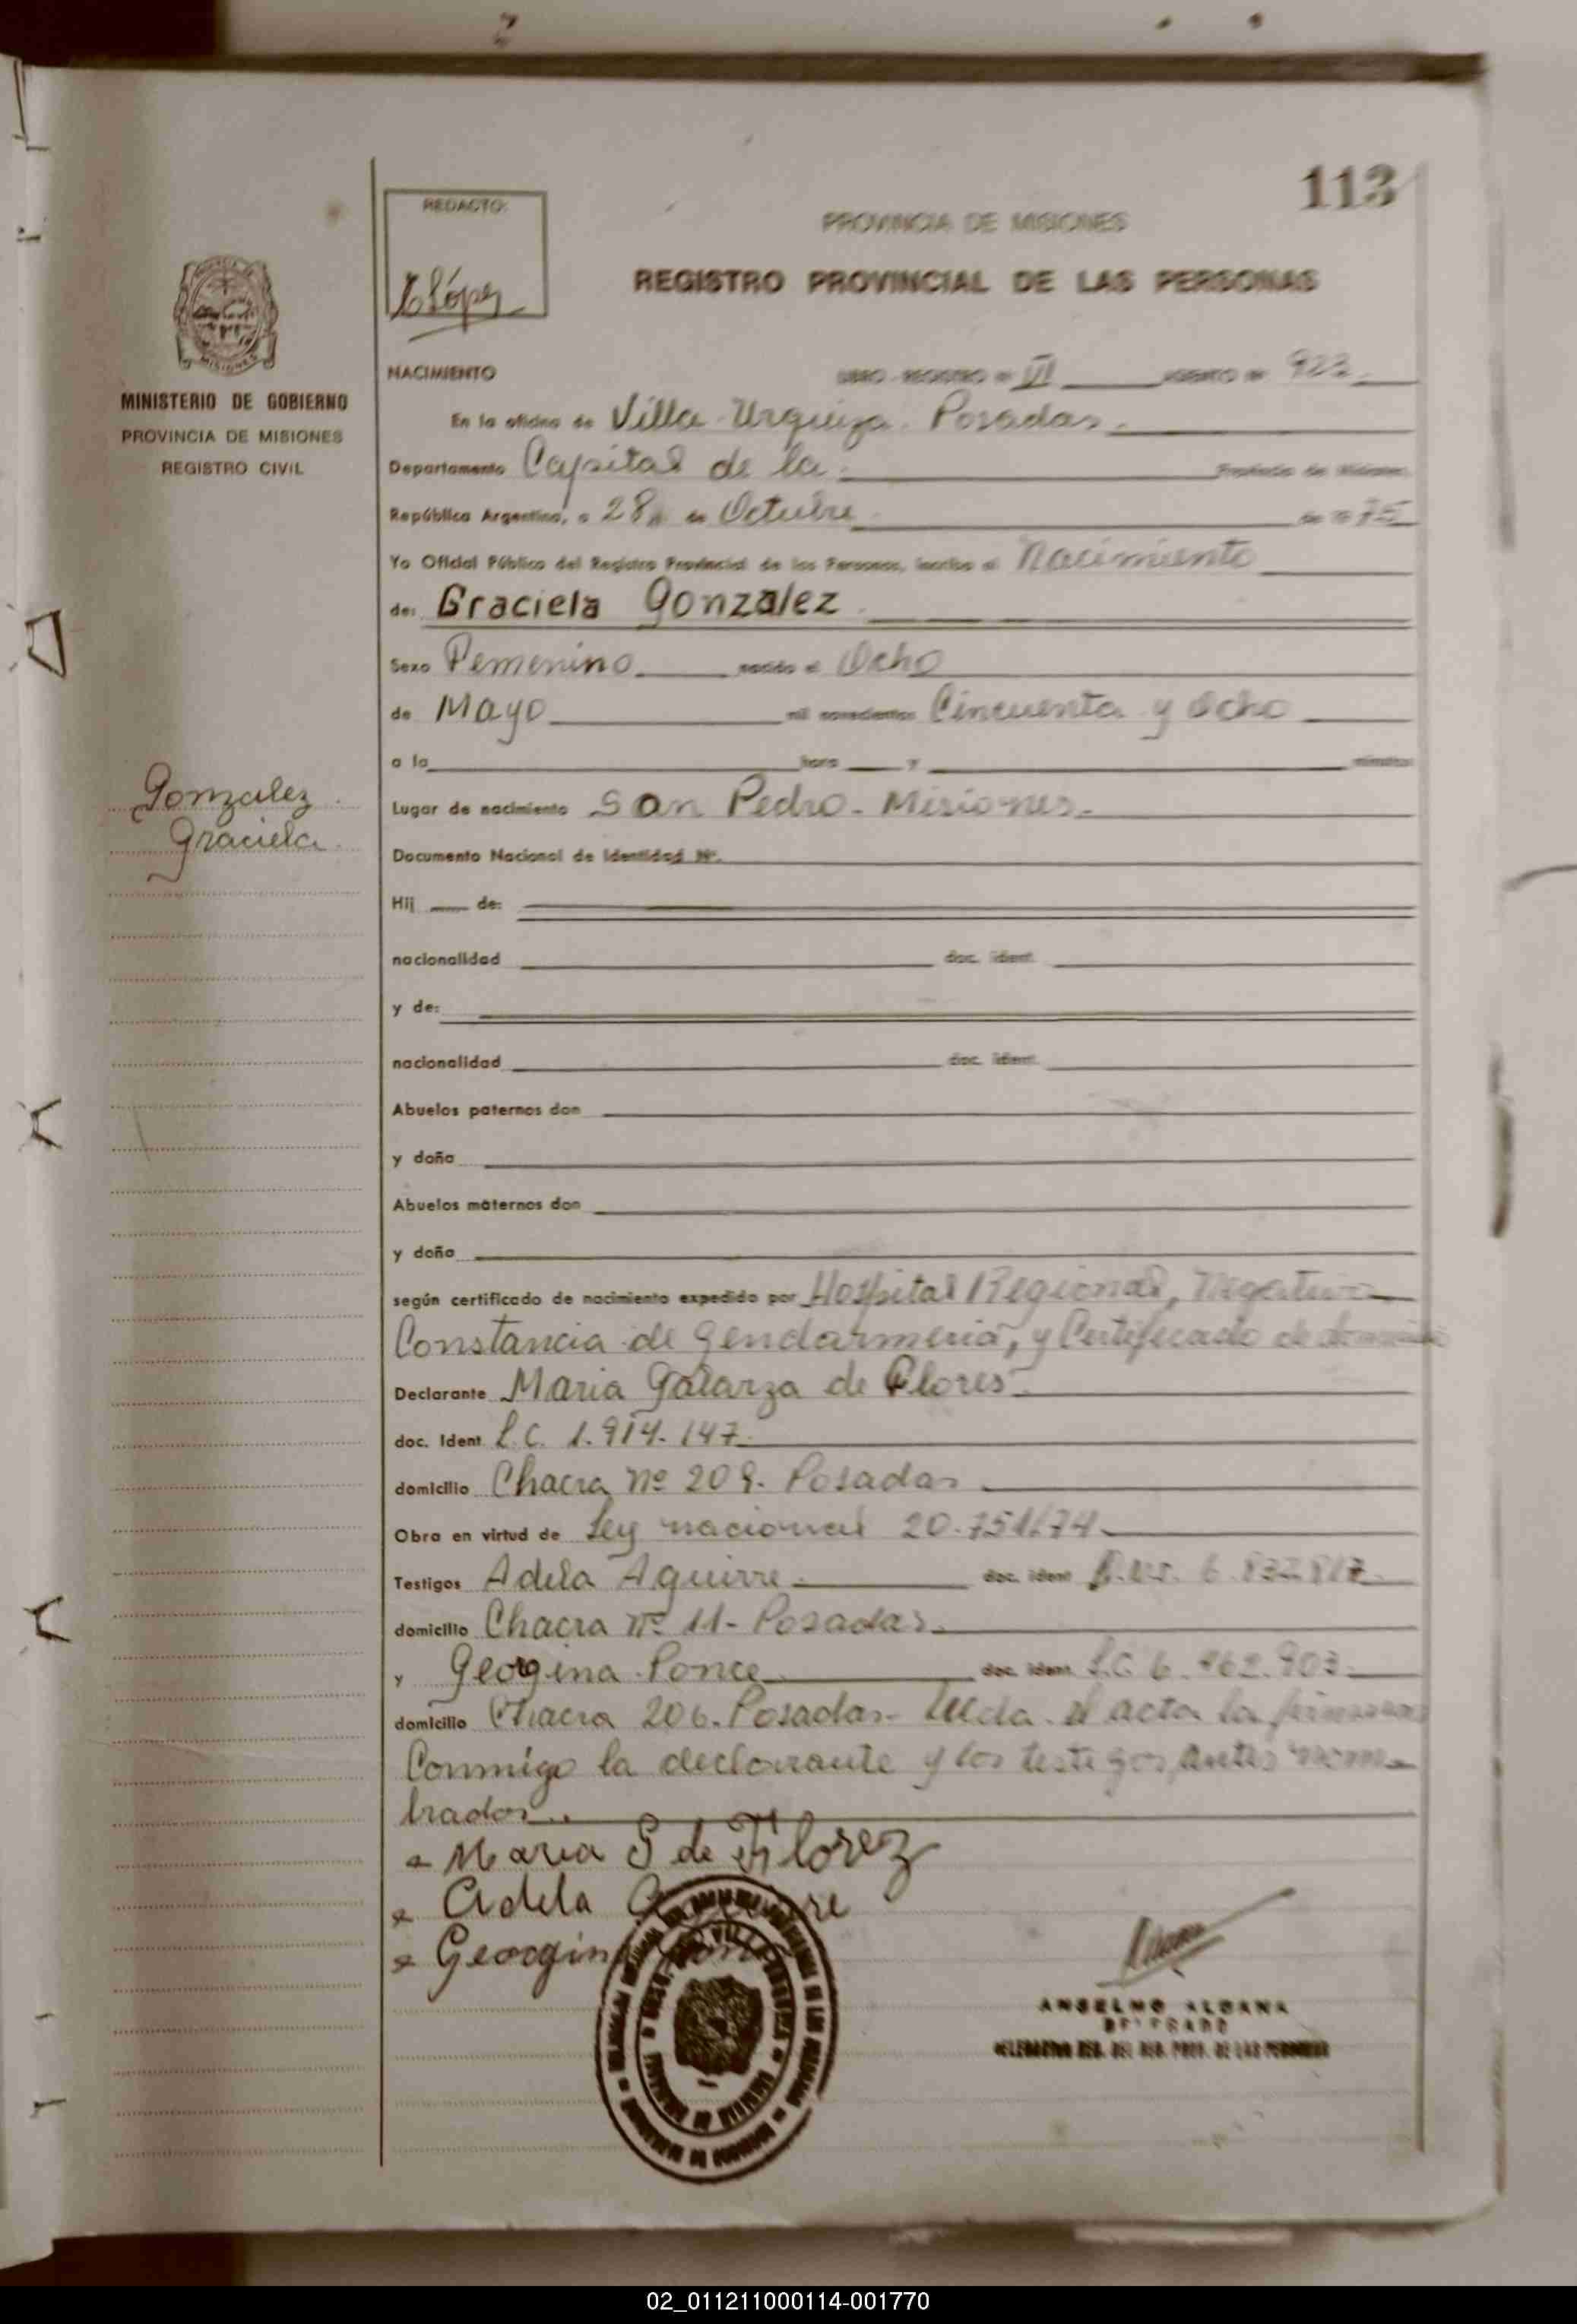 113
REDACTO:
López
PROVINCIA DE MISIONES
REGISTRO PROVINCIAL DE LAS PERSONAS
MINISTERIO DE GOBIERNO
PROVINCIA DE MISIONES
REGISTRO CIVIL
NACIMIENTO LIBRO REGISTRO Nº VI ASIENTO Nº 923
En la oficina de Villa Urquiza. Posadas.
Departamento Capital de la Provincia de Misiones
República Argentina, a 28 de Octubre de 1975
Yo Oficial Público del Registro Provincial de las Personas, inscribo el Nacimiento
de: Graciela Gonzalez
Sexo Femenino nacido el Ocho
de Mayo mil novecientos Cincuenta y Ocho
a la hora y minutos
Gonzalez
Graciela
Lugar de nacimiento San Pedro - Misiones.
Documento Nacional de Identidad Nº.
Hij de:
nacionalidad doc. ident.
y de:
nacionalidad doc. ident.
Abuelos paternos don
y doña
Abuelos maternos don
y doña
según certificado de nacimiento expedido por Hospital Regional, Negativa
Constancia de Gendarmeria, y Certificado de domicilio
Declarante Maria Galarza de Flores
doc. Ident L.C. 1.914.147
domicilio Chacra nº 209. Posadas
Obra en virtud de Ley nacional 20.751/74
Testigos Adela Aguirre doc. ident 6.832.817
domicilio Chacra nº 11 - Posadas.
y Georgina Ponce doc. ident L.C. 6. 903
domicilio Chacra 206. Posadas - Leida el acta la firman
Conmigo la declarante y los testigos antes nom
brados
Maria G de Florez
Adela
Georgina
ANSELMO ALDANA
DELEGADO